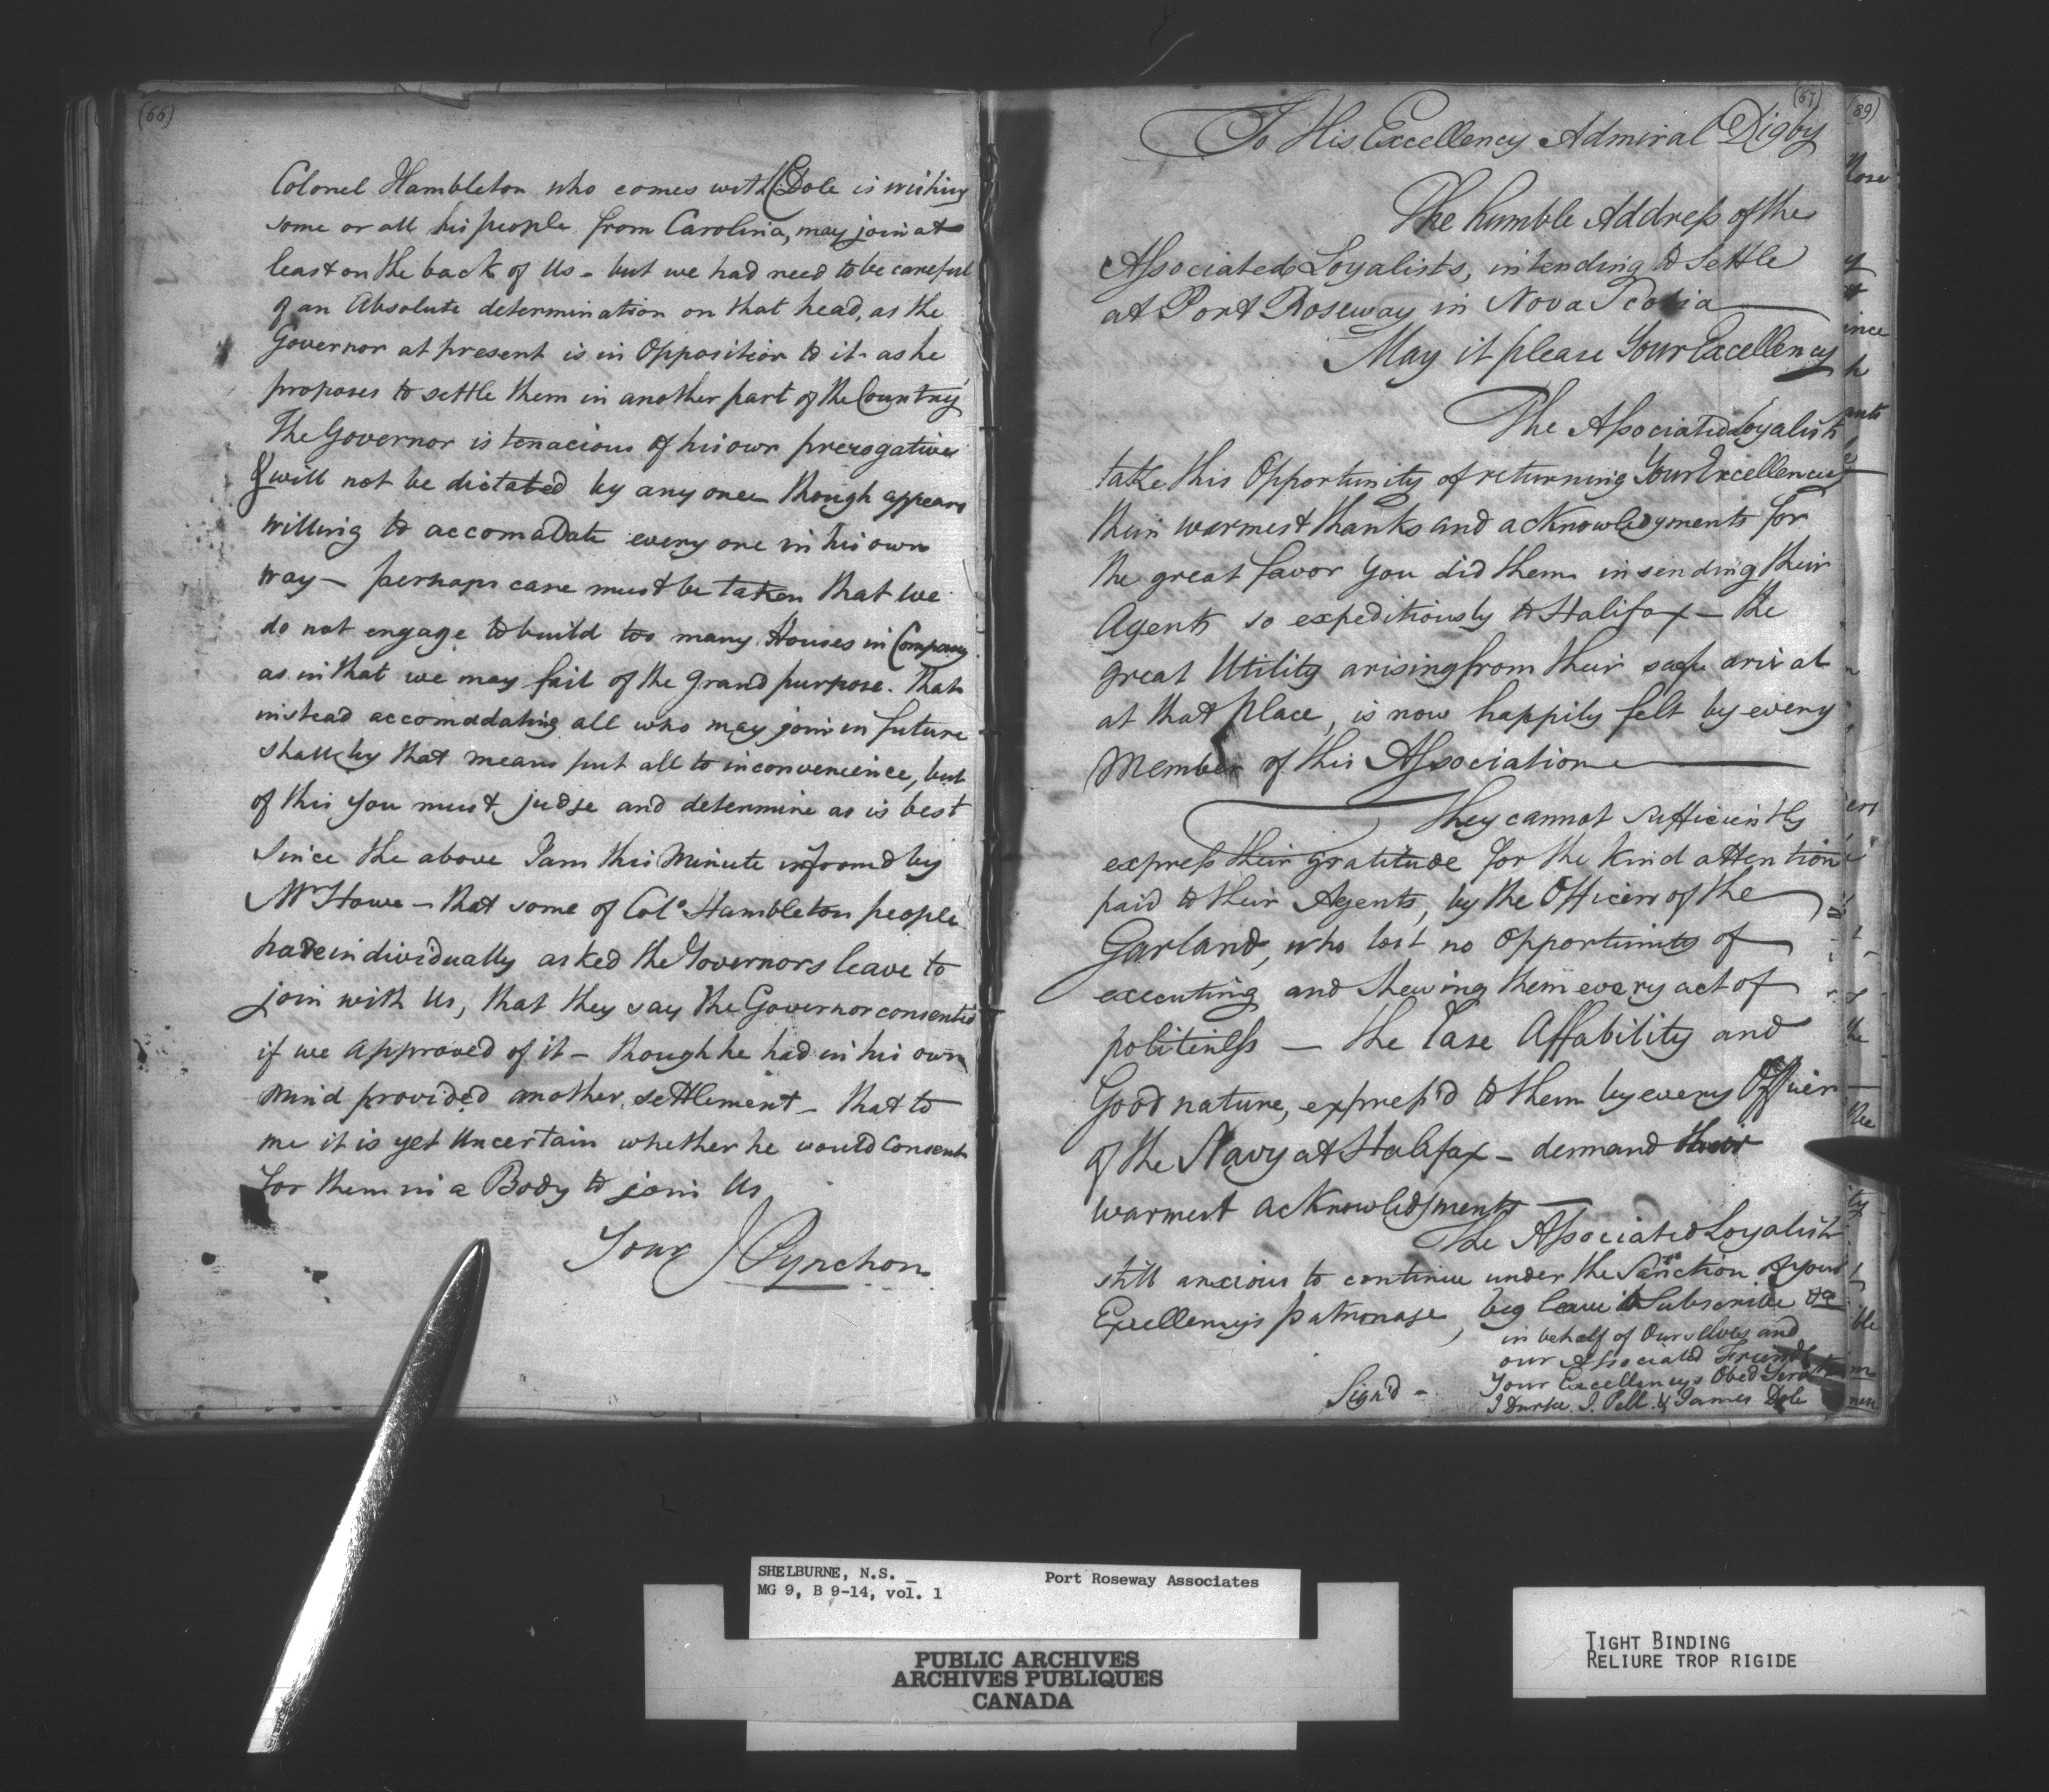 (66)
Colonel Hambleton who comes with Dole is wishing
some or all his people from Carolina, may join at
least on the back of Us - but we had need to be careful
of an Absolute determination on that head, as the
Governor at present is in Opposition to it as he
proposes to settle them in another part of the Country
The Governor is tenacious of his own prerogatives
& will not be dictated by any one though appears
willing to accomaDate every one in his own
way — perhaps care must be taken that we
do not engage to build too many Houses in Company
as in that we may fail of the grand purpose. That
instead accomodating all who may join in future
shall by that means put all to inconvenience, but
of this you must judge and determine as is best
Since the above I am this Minute informd by
Mr Howe — that some of Colo Hambleton people
have individually asked the Governors leave to
join with Us, that they say the Governor consented
if we approved of it — though he had in his own
mind provided another settlement — that to
me it is yet Uncertain whether he would consent
for them in a Body to join Us
Your J Pynchon
(67)
To His Excellency Admiral Digby
The humble Address of the
Associated Loyalists, intending to Settle
at Port Roseway in Nova Scotia
May it please Your Excellency
The Associated Loyalists
take this Opportunity of returning Your Excellency
their warmest thanks and acknowledgments for
the great favor you did them in sending their
Agents so expeditiously to Halifax — the
great Utility arising from their safe arival
at that Place, is now happily felt by every
Member of this Association
They cannot sufficiently
express their gratitude for the kind attention
paid to their Agents, by the Officers of the
Garland, who lost no opportunity of
executing and shewing them every act of
politeness — the Ease Affability and
Good nature, express'd to them by every Officer
of the Navy at Halifax — demand their
warmest acknowledgments —
The Associated Loyalists
still anxious to continue under the Sanction of your
Excellencys patronage, beg leave to Subscribe &c
in behalf of Ourselves and
our Associated Friends
Your Excellencys Obed Servts
Sign'd - J Durfee. J. Pell. & James Dole
(89)
Rose
ince
h
ants
ers
the
ity
ble
m
men
SHELBURNE, N.S. _ Port Roseway Associates
MG 9, B 9-14, vol. 1
PUBLIC ARCHIVES
ARCHIVES PUBLIQUES
CANADA
TIGHT BINDING
RELIURE TROP RIGIDE